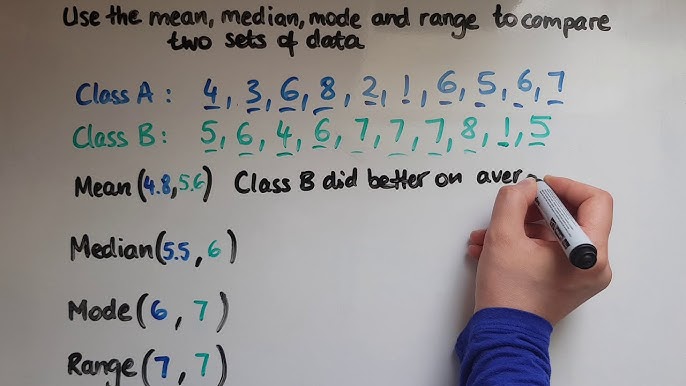 Use the mean, median, mode and range to compare
two sets of data
Class A : 4, 3, 6, 8, 2, 1, 6, 5, 6, 7
Class B : 5, 6, 4, 6, 7, 7, 7, 8, 1, 5
Mean (4.8, 5.6) Class B did better on aver
Median (5.5, 6)
Mode (6, 7)
Range (7, 7)